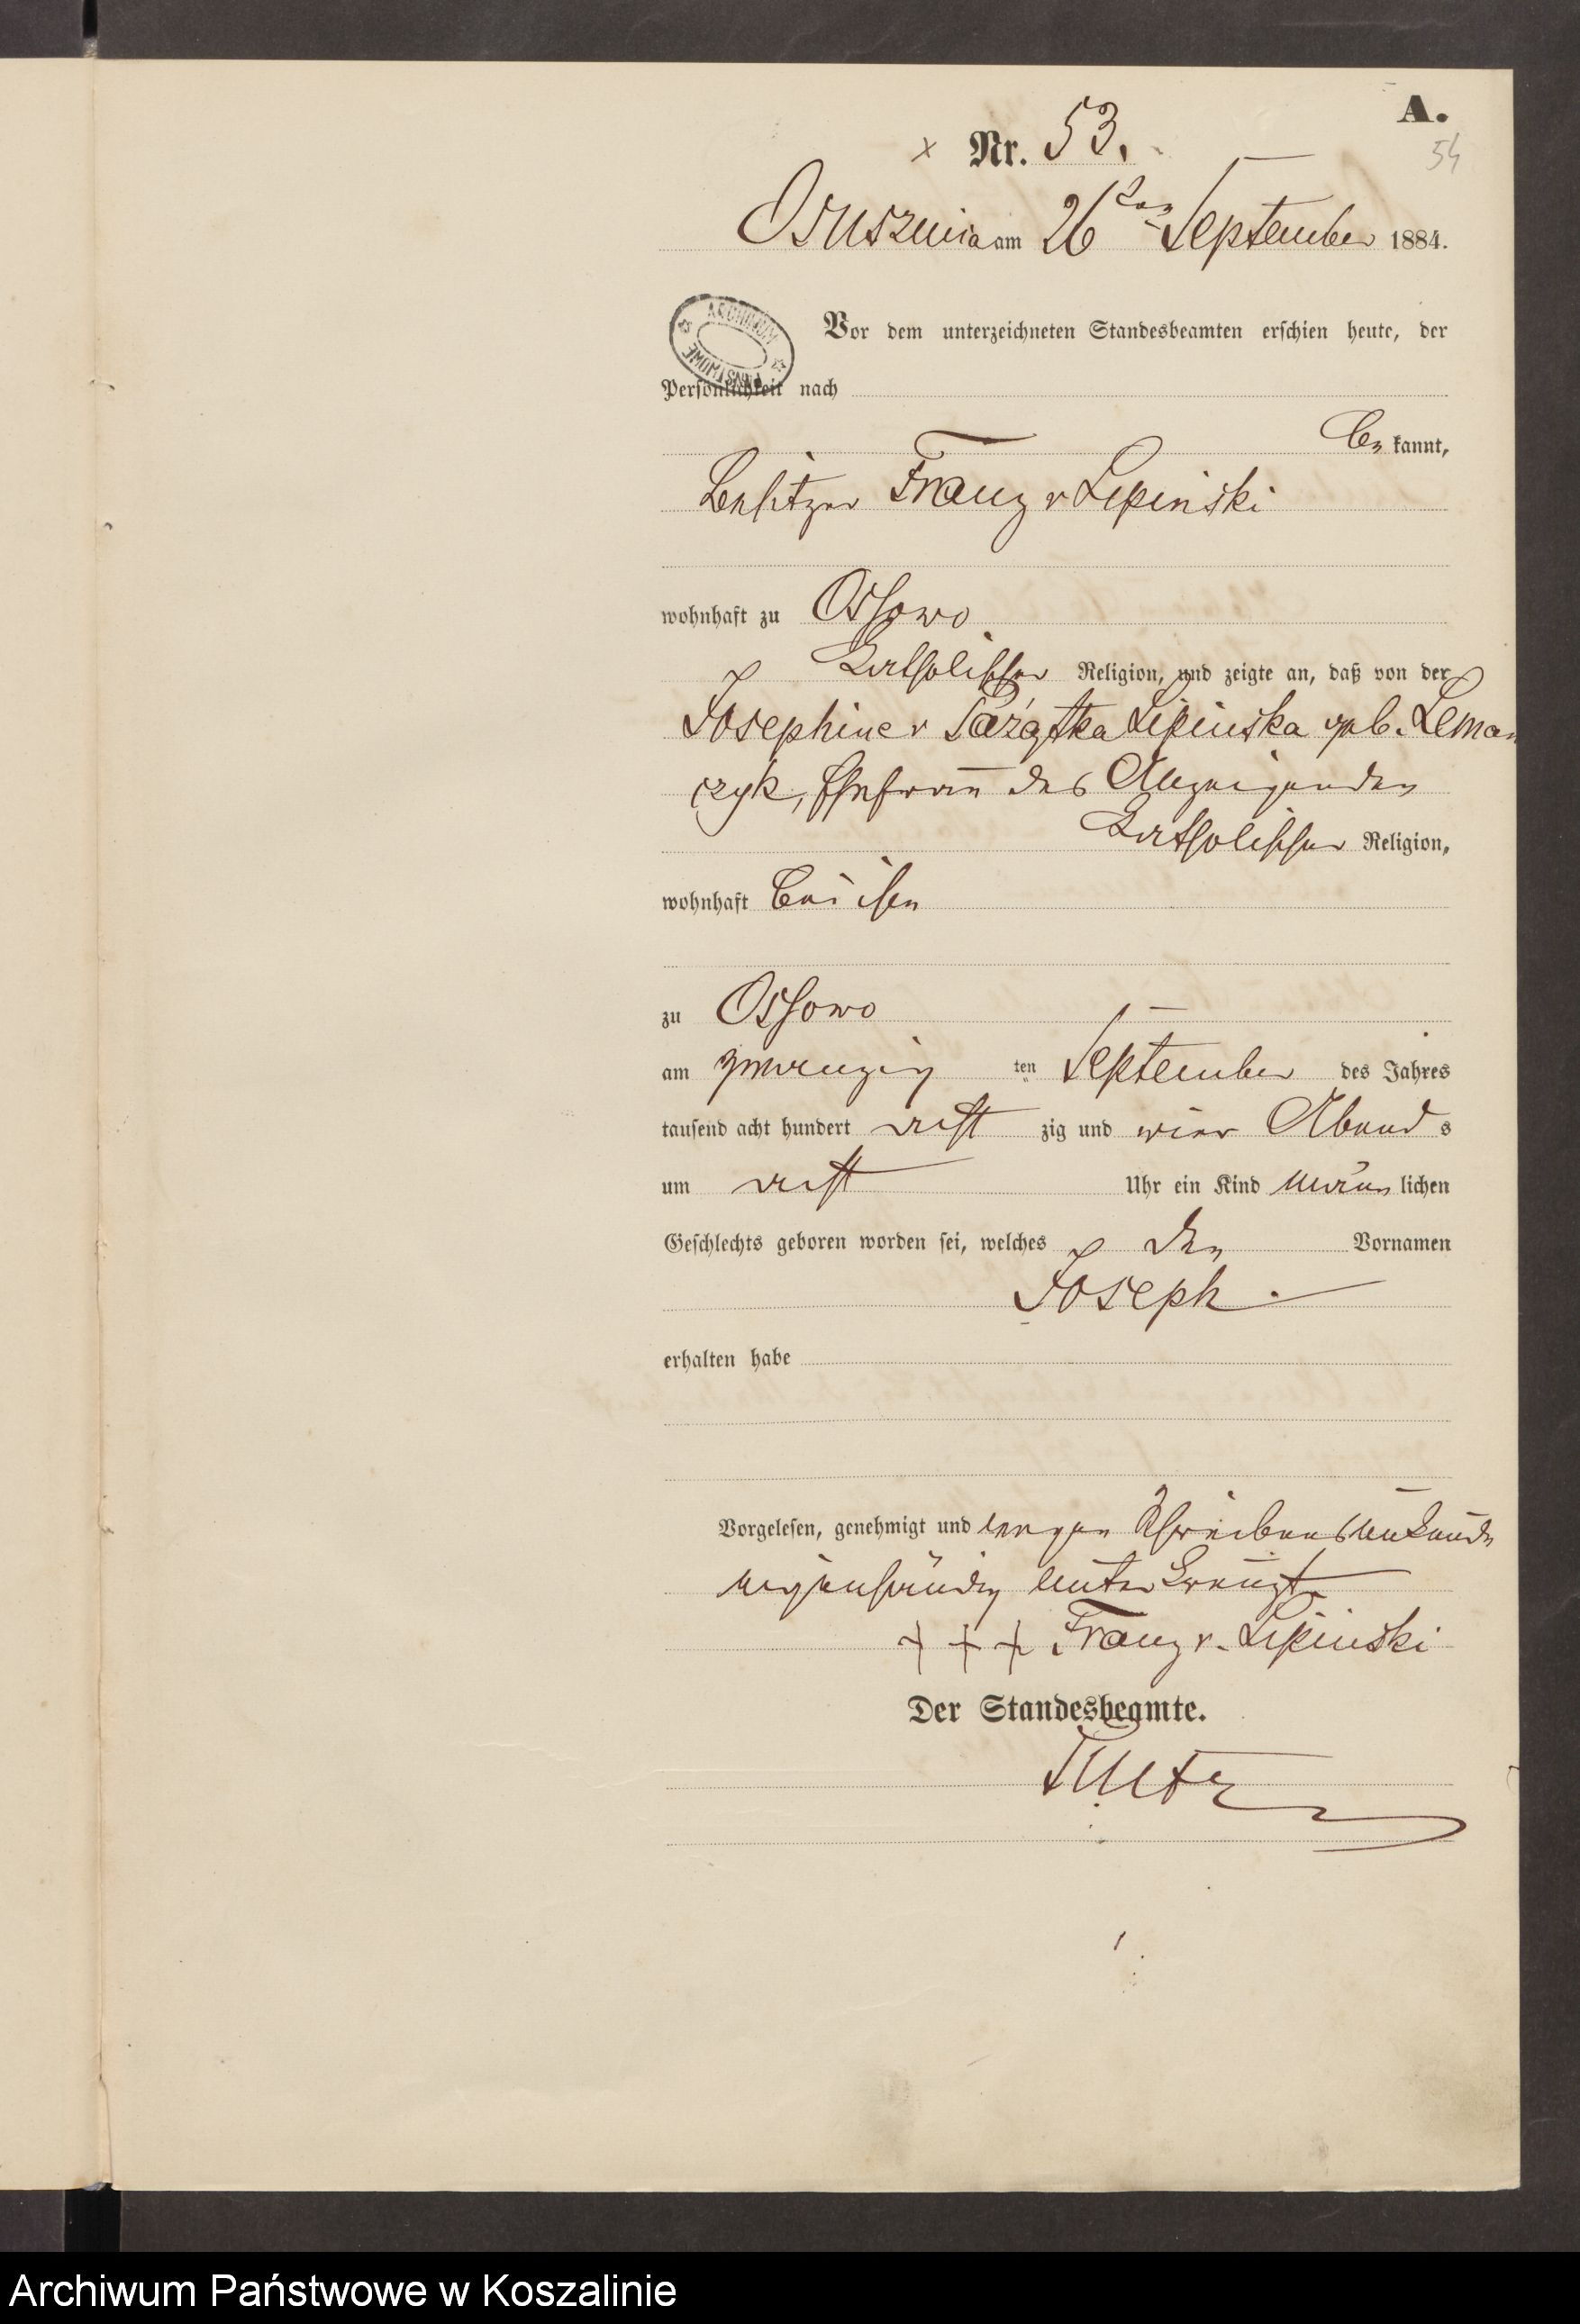 A.
54
x Nr. 53.
Osusznica am 26ten September 1884.
ARCHIWUM PAŃSTWOWE
Vor dem unterzeichneten Standesbeamten erschien heute, der
Persönlichkeit nach
be kannt,
Besitzer Franz v Lipinski
wohnhaft zu Ossowo
katholischer Religion, und zeigte an, daß von der
Josephine v Lipinska geb. Leman
czyk, Ehefrau des Anzeigenden
katholischer Religion,
wohnhaft bei ihm
zu Ossowo
am zwanzig ten September des Jahres
tausend acht hundert acht zig und vier Abend s
um acht Uhr ein Kind männ lichen
Geschlechts geboren worden sei, welches den Vornamen
Joseph.
erhalten habe
Vorgelesen, genehmigt und wegen Schreibensunkunde
eigenhändig unterkreuzt
+ + + Franz v. Lipinski
Der Standesbeamte.
Archiwum Państwowe w Koszalinie